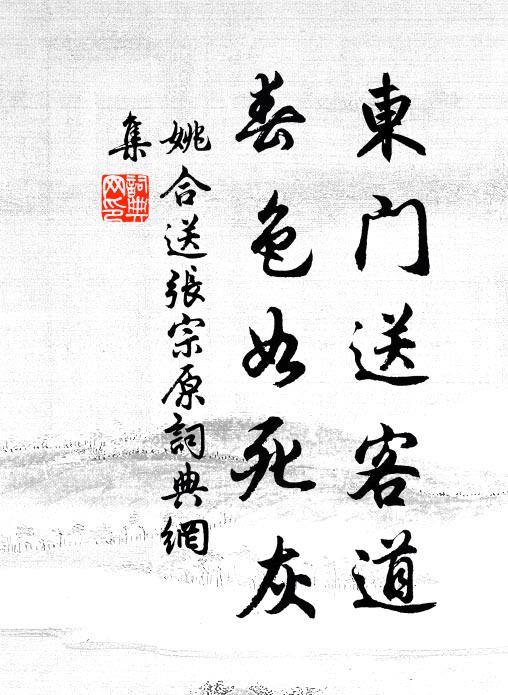 東门送客道
春色如死灰
姚合送張宗原詞典網
集
詞典
网印